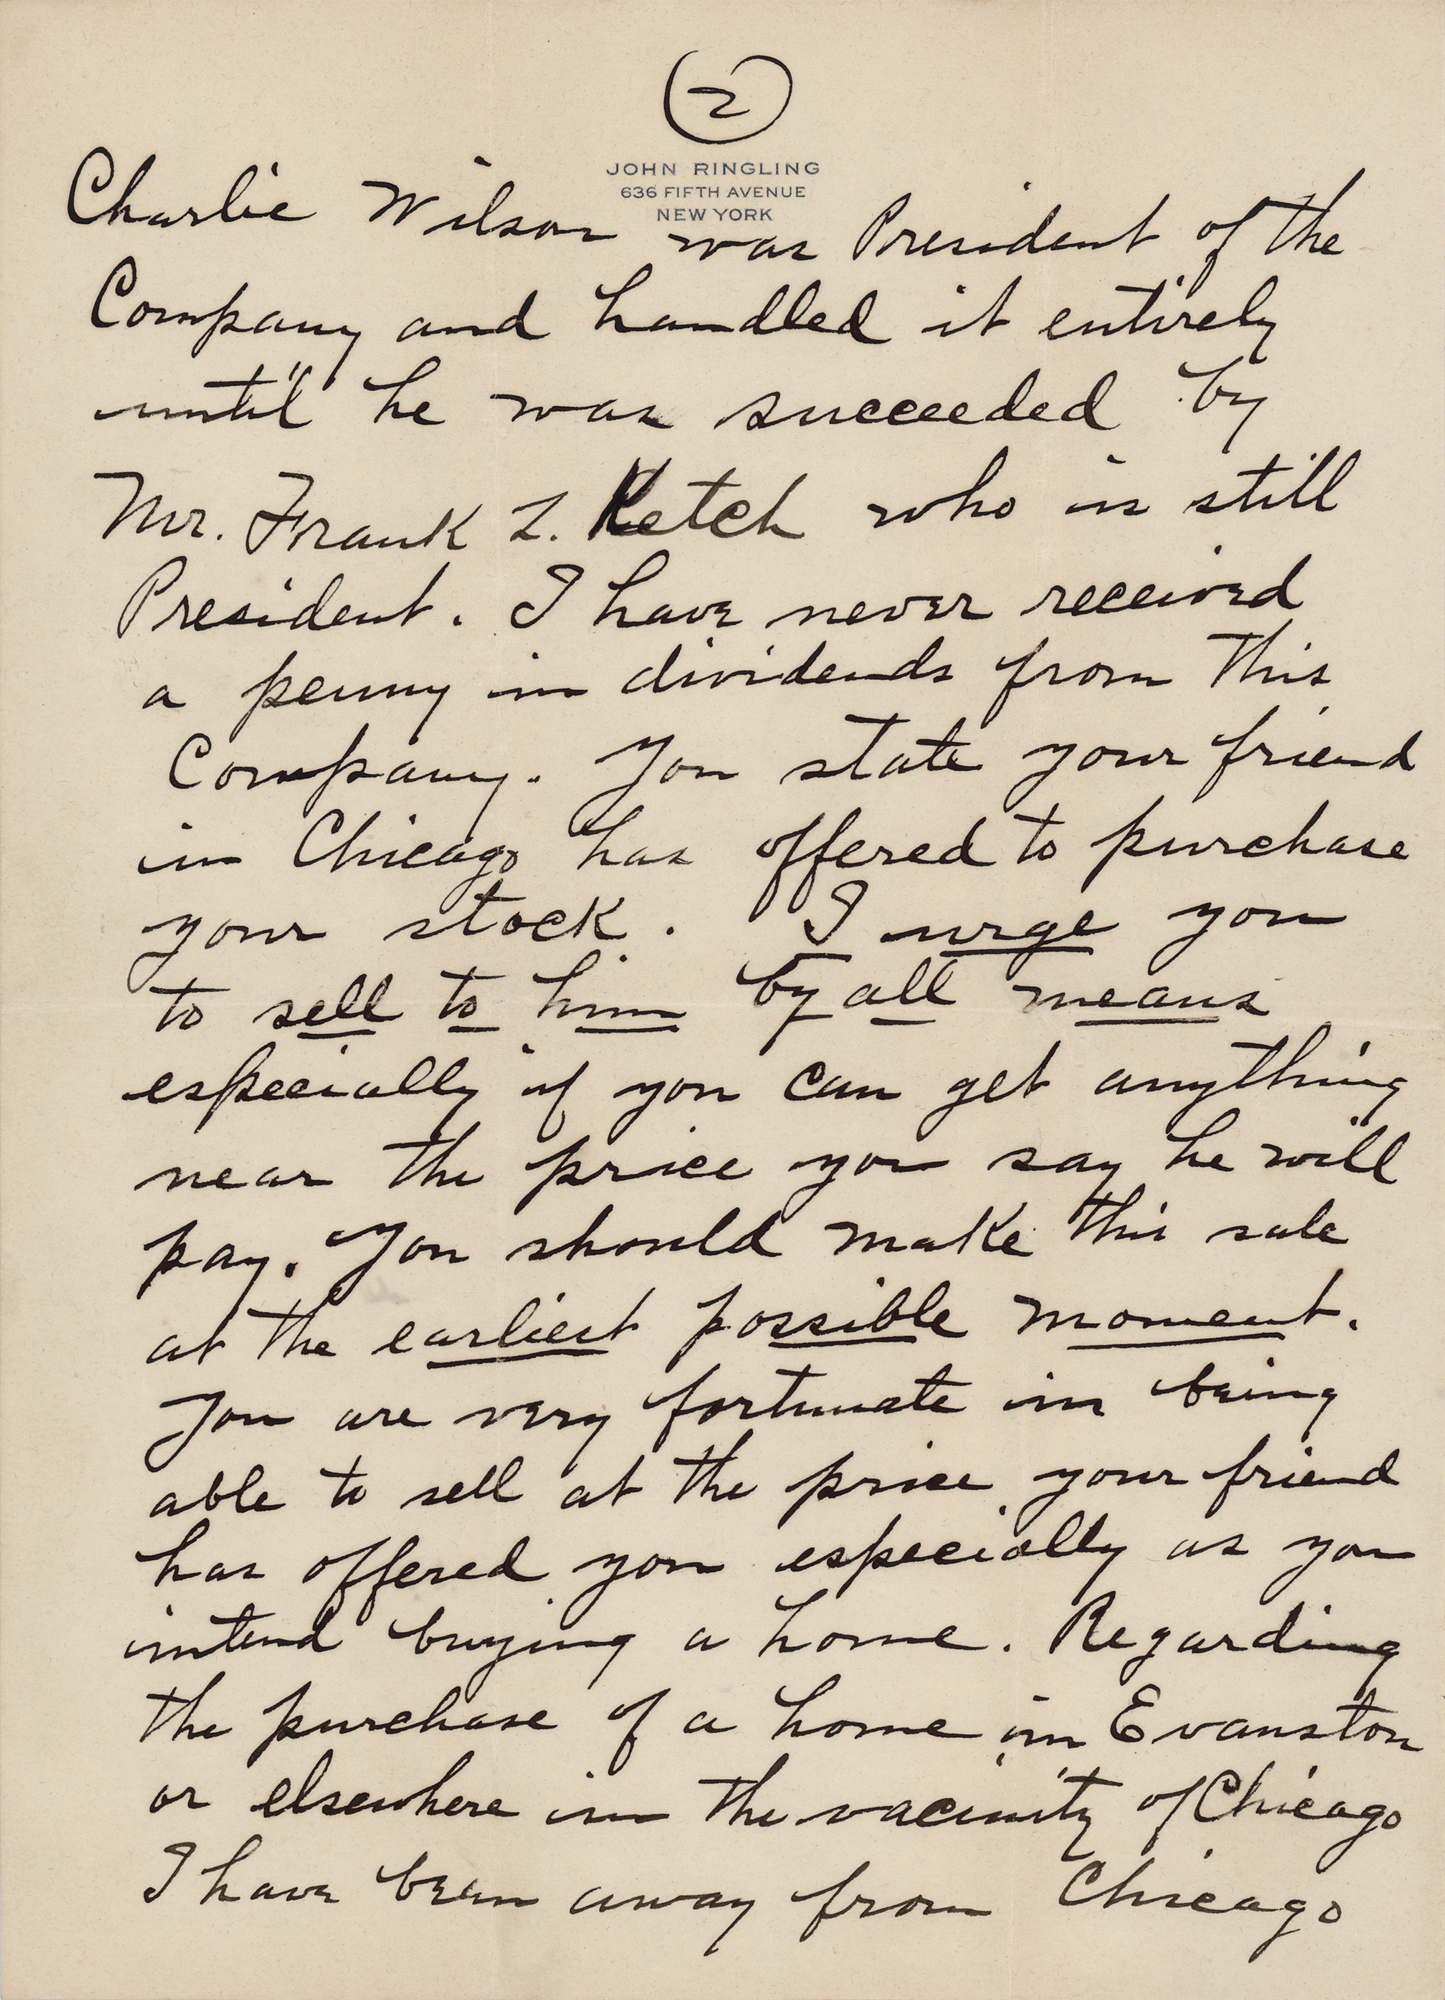 2
JOHN RINGLING
636 FIFTH AVENUE
NEW YORK
Charlie Wilson was President of the
Company and handled it entirely
until he was succeeded by
Mr. Frank L. Ketch who is still
President. I have never received
a penny in dividends from this
Company. You state your friend
in Chicago has offered to purchase
your stock. I urge you
to sell to him by all means
especially if you can get anything
near the price you say he will
pay. You should make this sale
at the earliest possible moment.
You are very fortunate in being
able to sell at the price your friend
has offered you especially as you
intend buying a home. Regarding
the purchase of a home in Evanston
or elsewhere in the vacinity of Chicago
I have been away from Chicago